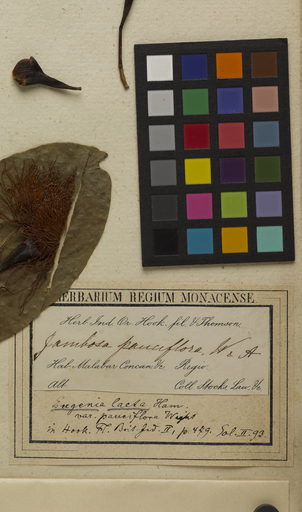 HERBARIUM REGIUM MONACENSE.
Herb. Ind. Or. Hook. fil. & Thomson.
Jambosa pauciflora, W & A
Hab. Malabar Concan &c. Regio
Alt. Coll. Stocks Law &c.
Eugenia laeta Ham.
var. pauciflora Wight
in Hook. Fl. Brit. Ind. II, p. 479. Fol. II. 93